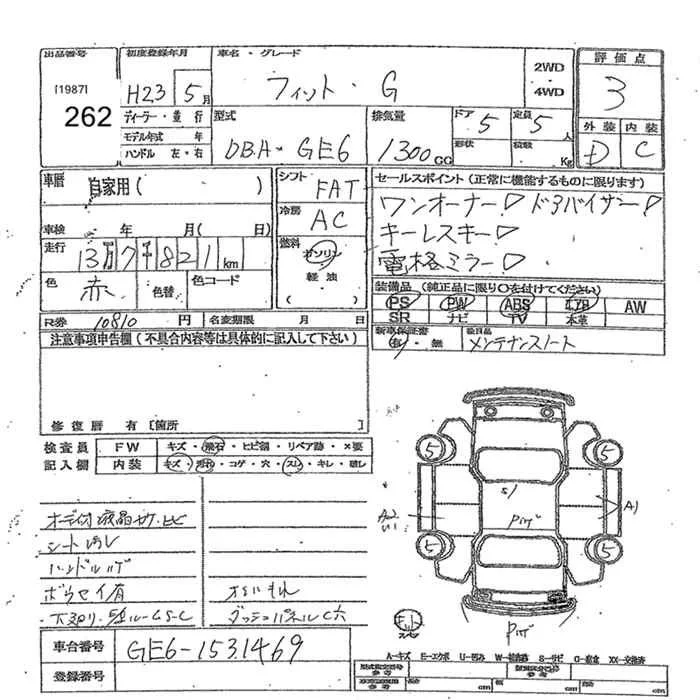 出品番号 初度登録年月 車名・グレード 評価点
[1987]
262
H23 5月
フィット・G
2WD
4WD
3
ディーラー・並行
モデル年式 年
ハンドル 左・右
型式 DBA-GE6
排気量 1300CC
ドア 5 定員 5人
形状 積載 Kg
外装 内装
D C
車暦 自家用( )
シフト FAT
セールスポイント(正常に機能するものに限ります)
ワンオーナー♡ ドアバイザー♡
冷房 AC
キーレスキー♡
車検 年 月( 日)
電格ミラー♡
走行 13万7千821km
燃料 ガソリン
軽油
色 赤 色替 色コード
装備品(純正品に限り○を付けてください)
PS PW ABS エアB AW
SR ナビ TV 本革
R券 10810円 名変期限 月 日
新車保証書 有・無
後日品 メンテナンスノート
注意事項申告欄(不具合内容等は具体的に記入して下さい)
修復暦 有[箇所 ]
検査員 FW キズ・飛石・ヒビ割・リペア跡・×要
記入欄 内装 キズ・汚れ・コゲ・穴・スレ・キレ・破レ
シート汚レ
ボウセイ有
オイルもれ
ダッシュパネルビス穴
5 5
A1
5 5
車台番号 GE6-1531469
登録番号
A=キズ E=エクボ U=凹み W=補修跡 S=サビ C=腐食 XX=交換済
型式指定番号
参考
類別区分番号
参考
cm cm cm